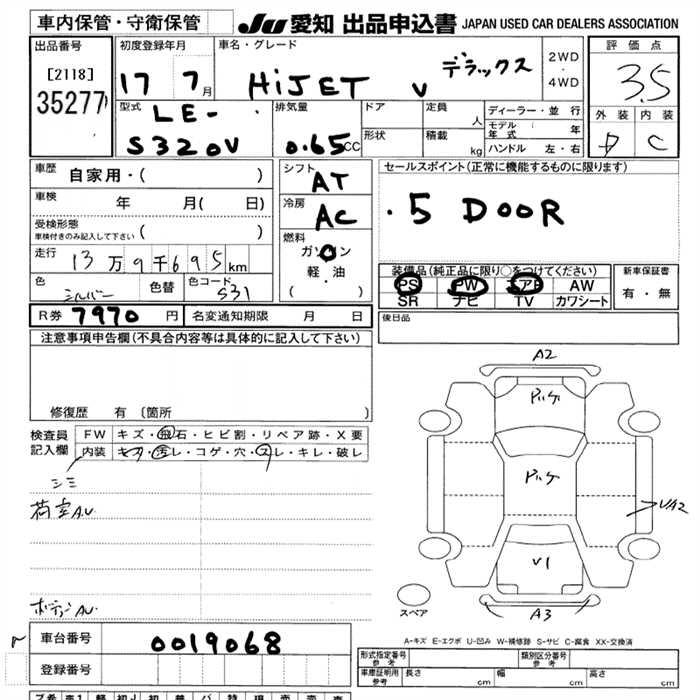 車内保管・守衛保管
JU 愛知 出品申込書 JAPAN USED CAR DEALERS ASSOCIATION
出品番号
[2118]
35277
初度登録年月
17 7月
車名・グレード
HiJET V デラックス
2WD
・
4WD
評価点
3.5
外装 内装
D C
型式
LE-
S320V
排気量
0.65CC
ドア
形状
定員
人
積載
kg
ディーラー・並行
モデル年式 年
ハンドル 左・右
車歴
自家用・( )
車検
年 月( 日)
受検形態
車検付きのみ記入して下さい ( )
走行
13万9千695km
色
シルバー
色替
色コード
S31
シフト
AT
冷房
AC
燃料
ガソリン
軽・油
( )
セールスポイント(正常に機能するものに限ります)
・5 DOOR
装備品(純正品に限り○をつけてください)
PS PW エアB AW
SR ナビ TV カワシート
新車保証書
有・無
後日品
R券 7970 円
名変通知期限 月 日
注意事項申告欄(不具合内容等は具体的に記入して下さい)
修復歴 有 〔箇所 〕
検査員
記入欄
FW キズ・飛石・ヒビ割・リペア跡・X要
内装 キズ・汚レ・コゲ・穴・スレ・キレ・破レ
シミ
荷室A.U
ボディAU
A2
VA2
V1
A3
スペア
A-キズ E-エクボ U-凹み W-補修跡 S-サビ C-腐食 XX-交換済
車台番号
0019068
登録番号
形式指定番号
参考
類別区分番号
参考
車庫証明用
参考
長さ cm 幅 cm 高さ cm